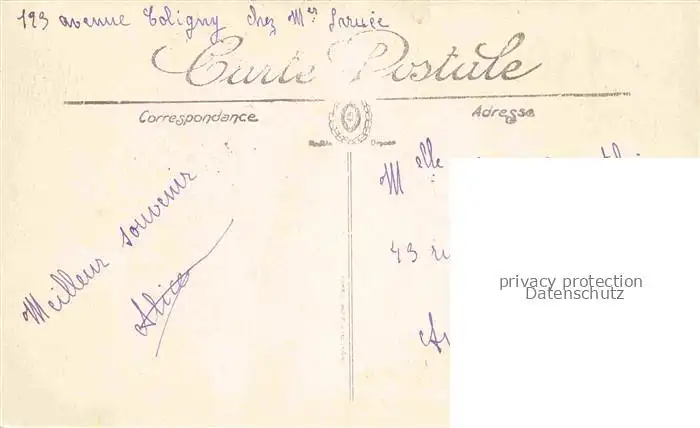 193 avenue Toligny chez Mer
Carte Postale
Correspondance
Adresse
Melle
Meilleur souvenir
43
Alice
privacy protection
Datenschutz